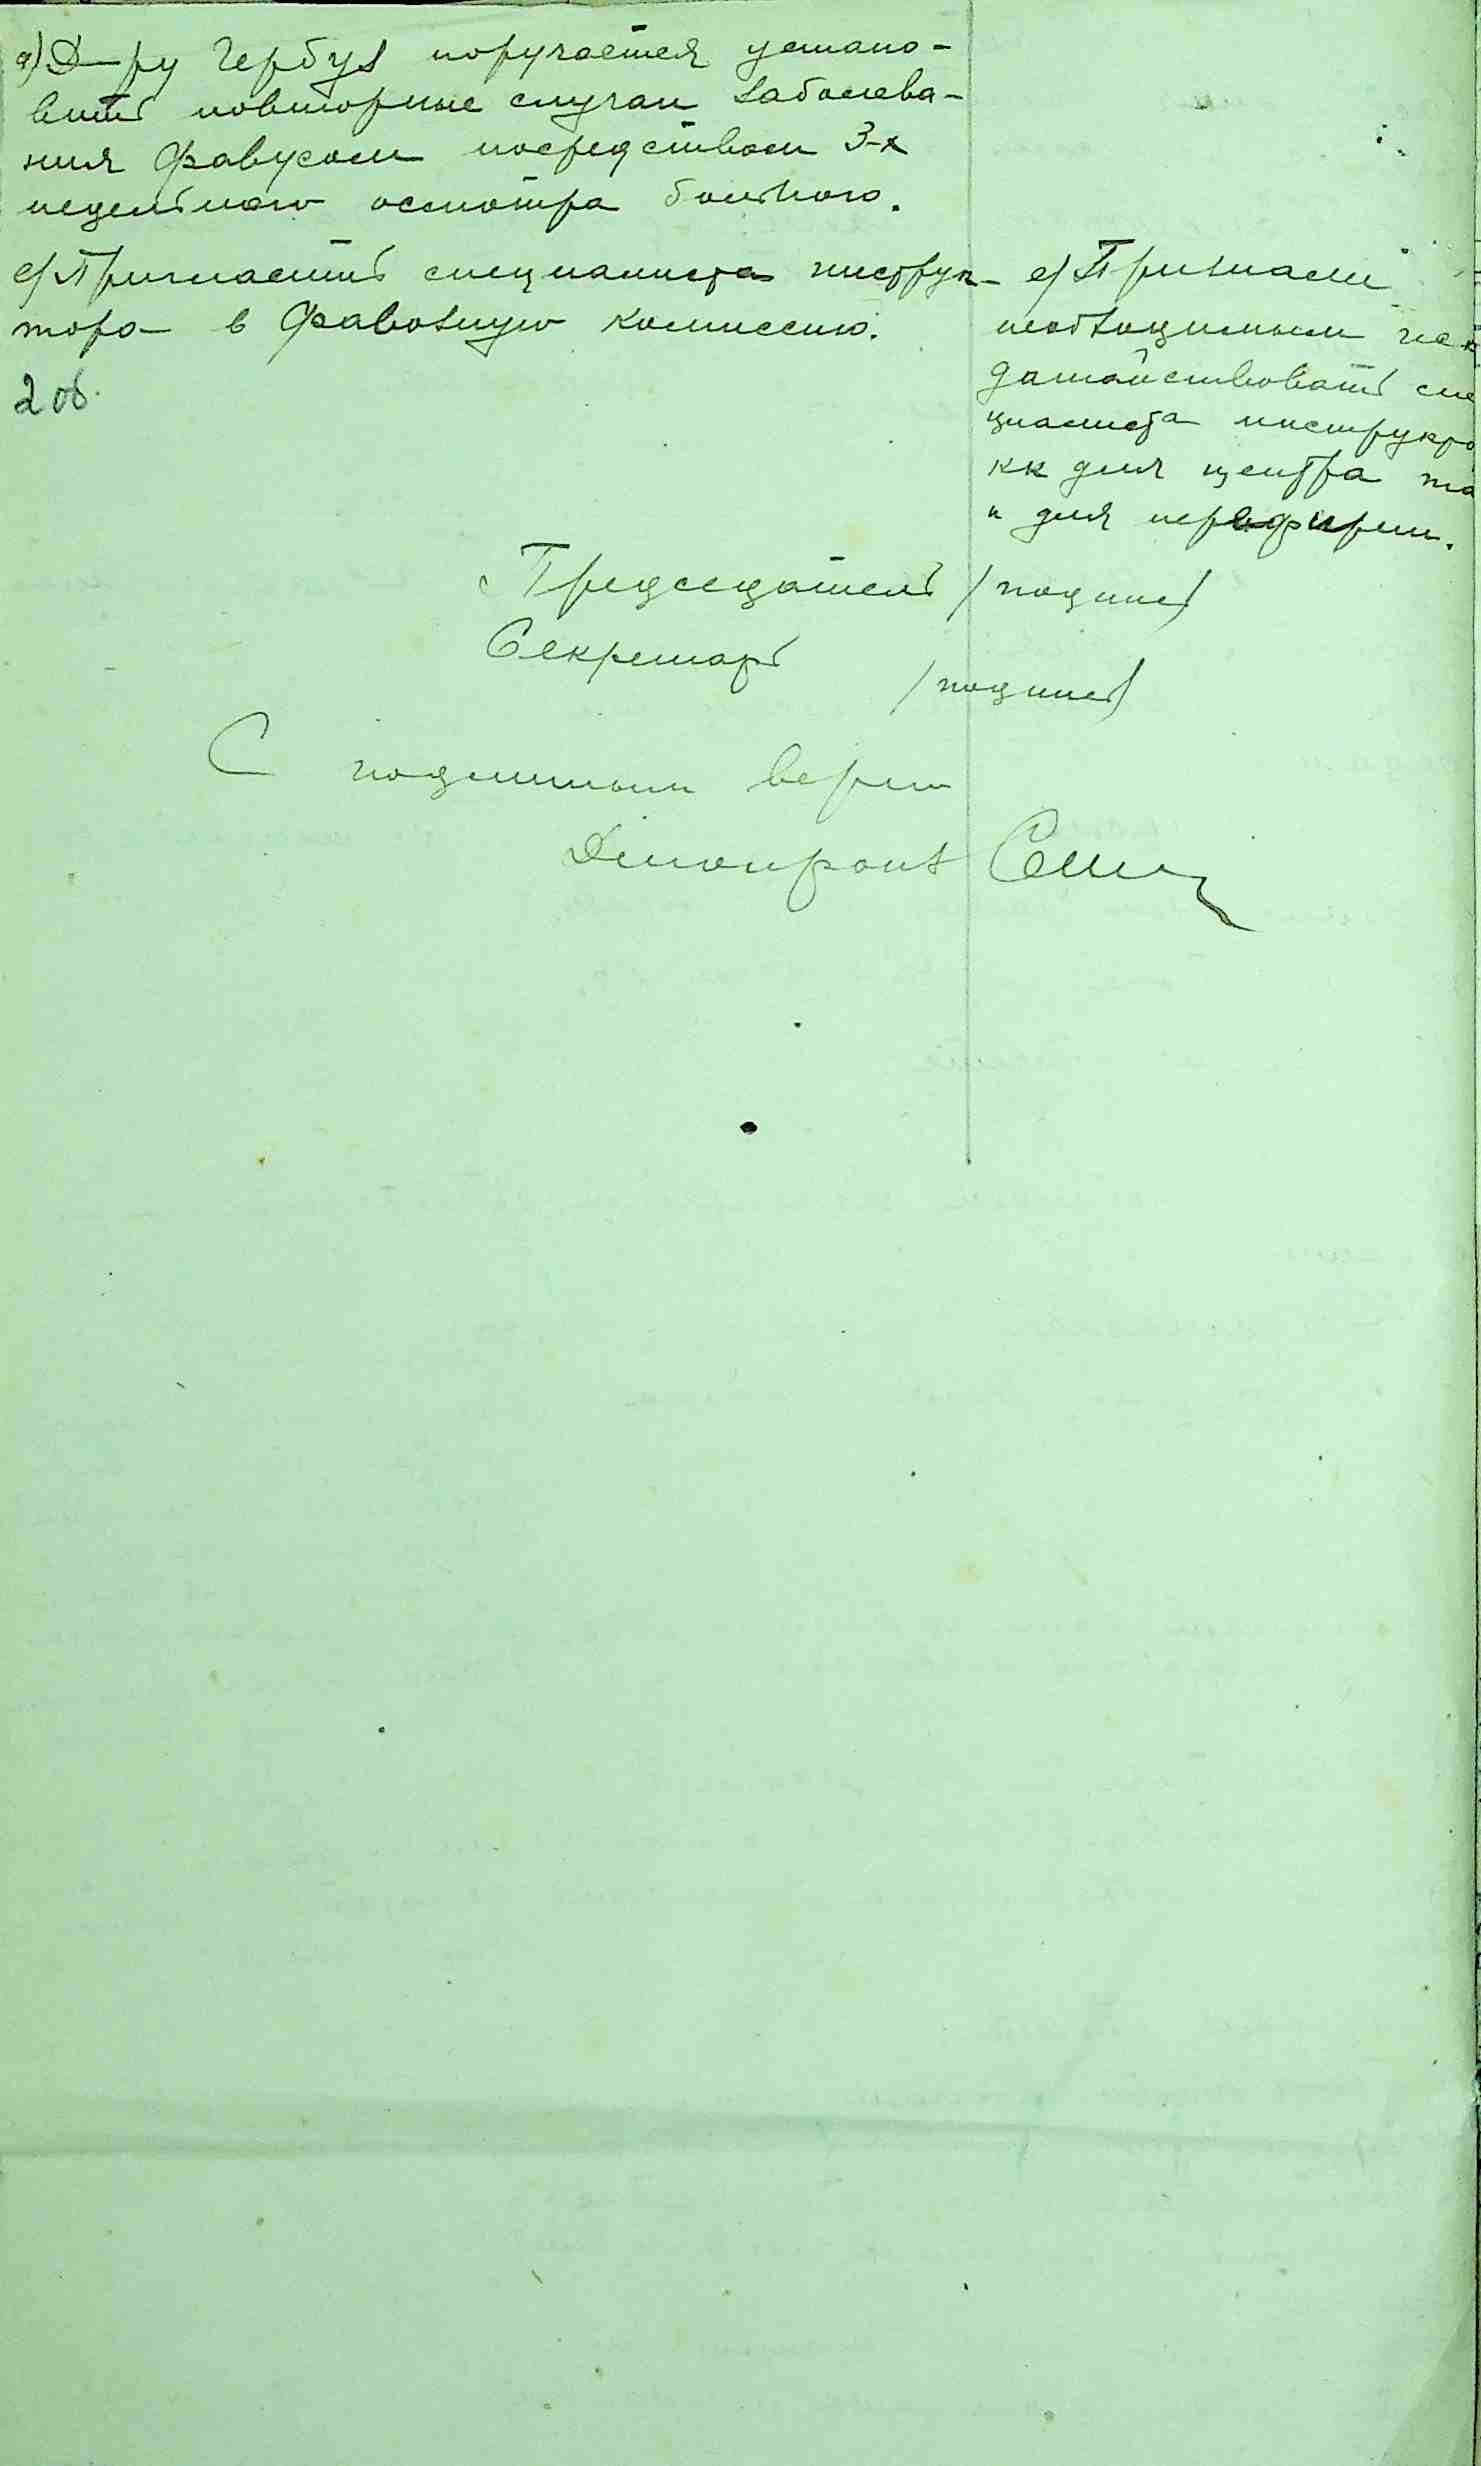 д) Д-ру Гербуз поручается устано-
вить повторные случаи заболева-
ния Фавусом посредством 3-х
недельного осмотра больного.
е) Пригласить специалиста инструк-
тора в Фавозную комиссию.
2 об.
е) Признали
необходимым хо
датайствовать спе
циалиста инструкто
кк для центра та
и для переферии.
Председатель /подпись/
Секретарь
/подпись/
С подлинным верно